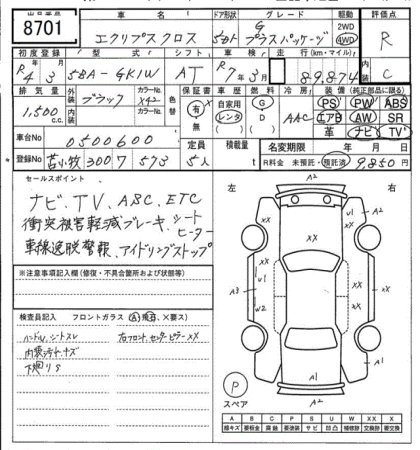 出品番号 車名 ドア形状 グレード 駆動 評価点
8701 エクリプスクロス 5ドア G プラスパッケージ 2WD 4WD R
初度登録 型式 シフト 車検 走行(km・マイル) 内装
R4/3 5BA-GK1W AT R7年3月 89,874 C
排気量 外装 カラーNo. 色替 保証書 車歴 燃料 冷房 装備(純正部品に限る)
1,500c.c. ブラック X42 有・無 自家用 レンタ G D AAC PS PW ABS
エアB AW SR
革 ナビ TV
車台No 0500600 定員 積載量 名変期限 年 月 日
登録No 苫小牧 300 7 573 5人 R料金 未預託・預託済 9,850円
セールスポイント
ナビ、TV、ABC、ETC
衝突被害軽減ブレーキ、シートヒーター
車線逸脱警報、アイドリングストップ
左 右
A2
U1
A2
XX
XX
XX
A3
W2
A1
A1
A2
P
スペア
※注意事項記入欄(修復・不具合箇所および状態等)
検査員記入欄 フロントガラス(A・飛石、X要ス)
ハンドル、シートスレ 右フロント、センターピラーXX
内装汚れ、キズ
下廻りサ
A B C P S U W XX X
線キズ 要板金 腐蝕 要塗装 サビ 凹凸 補修跡 交換跡 要交換